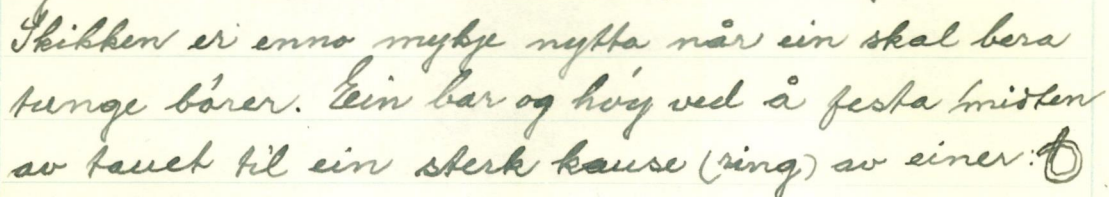 Skikken er enno mykje nytta når ein skal bera
tunge bórer. Ein bar og hóy ved å festa midten
av tauet til ein sterk kause (ring) av einer: